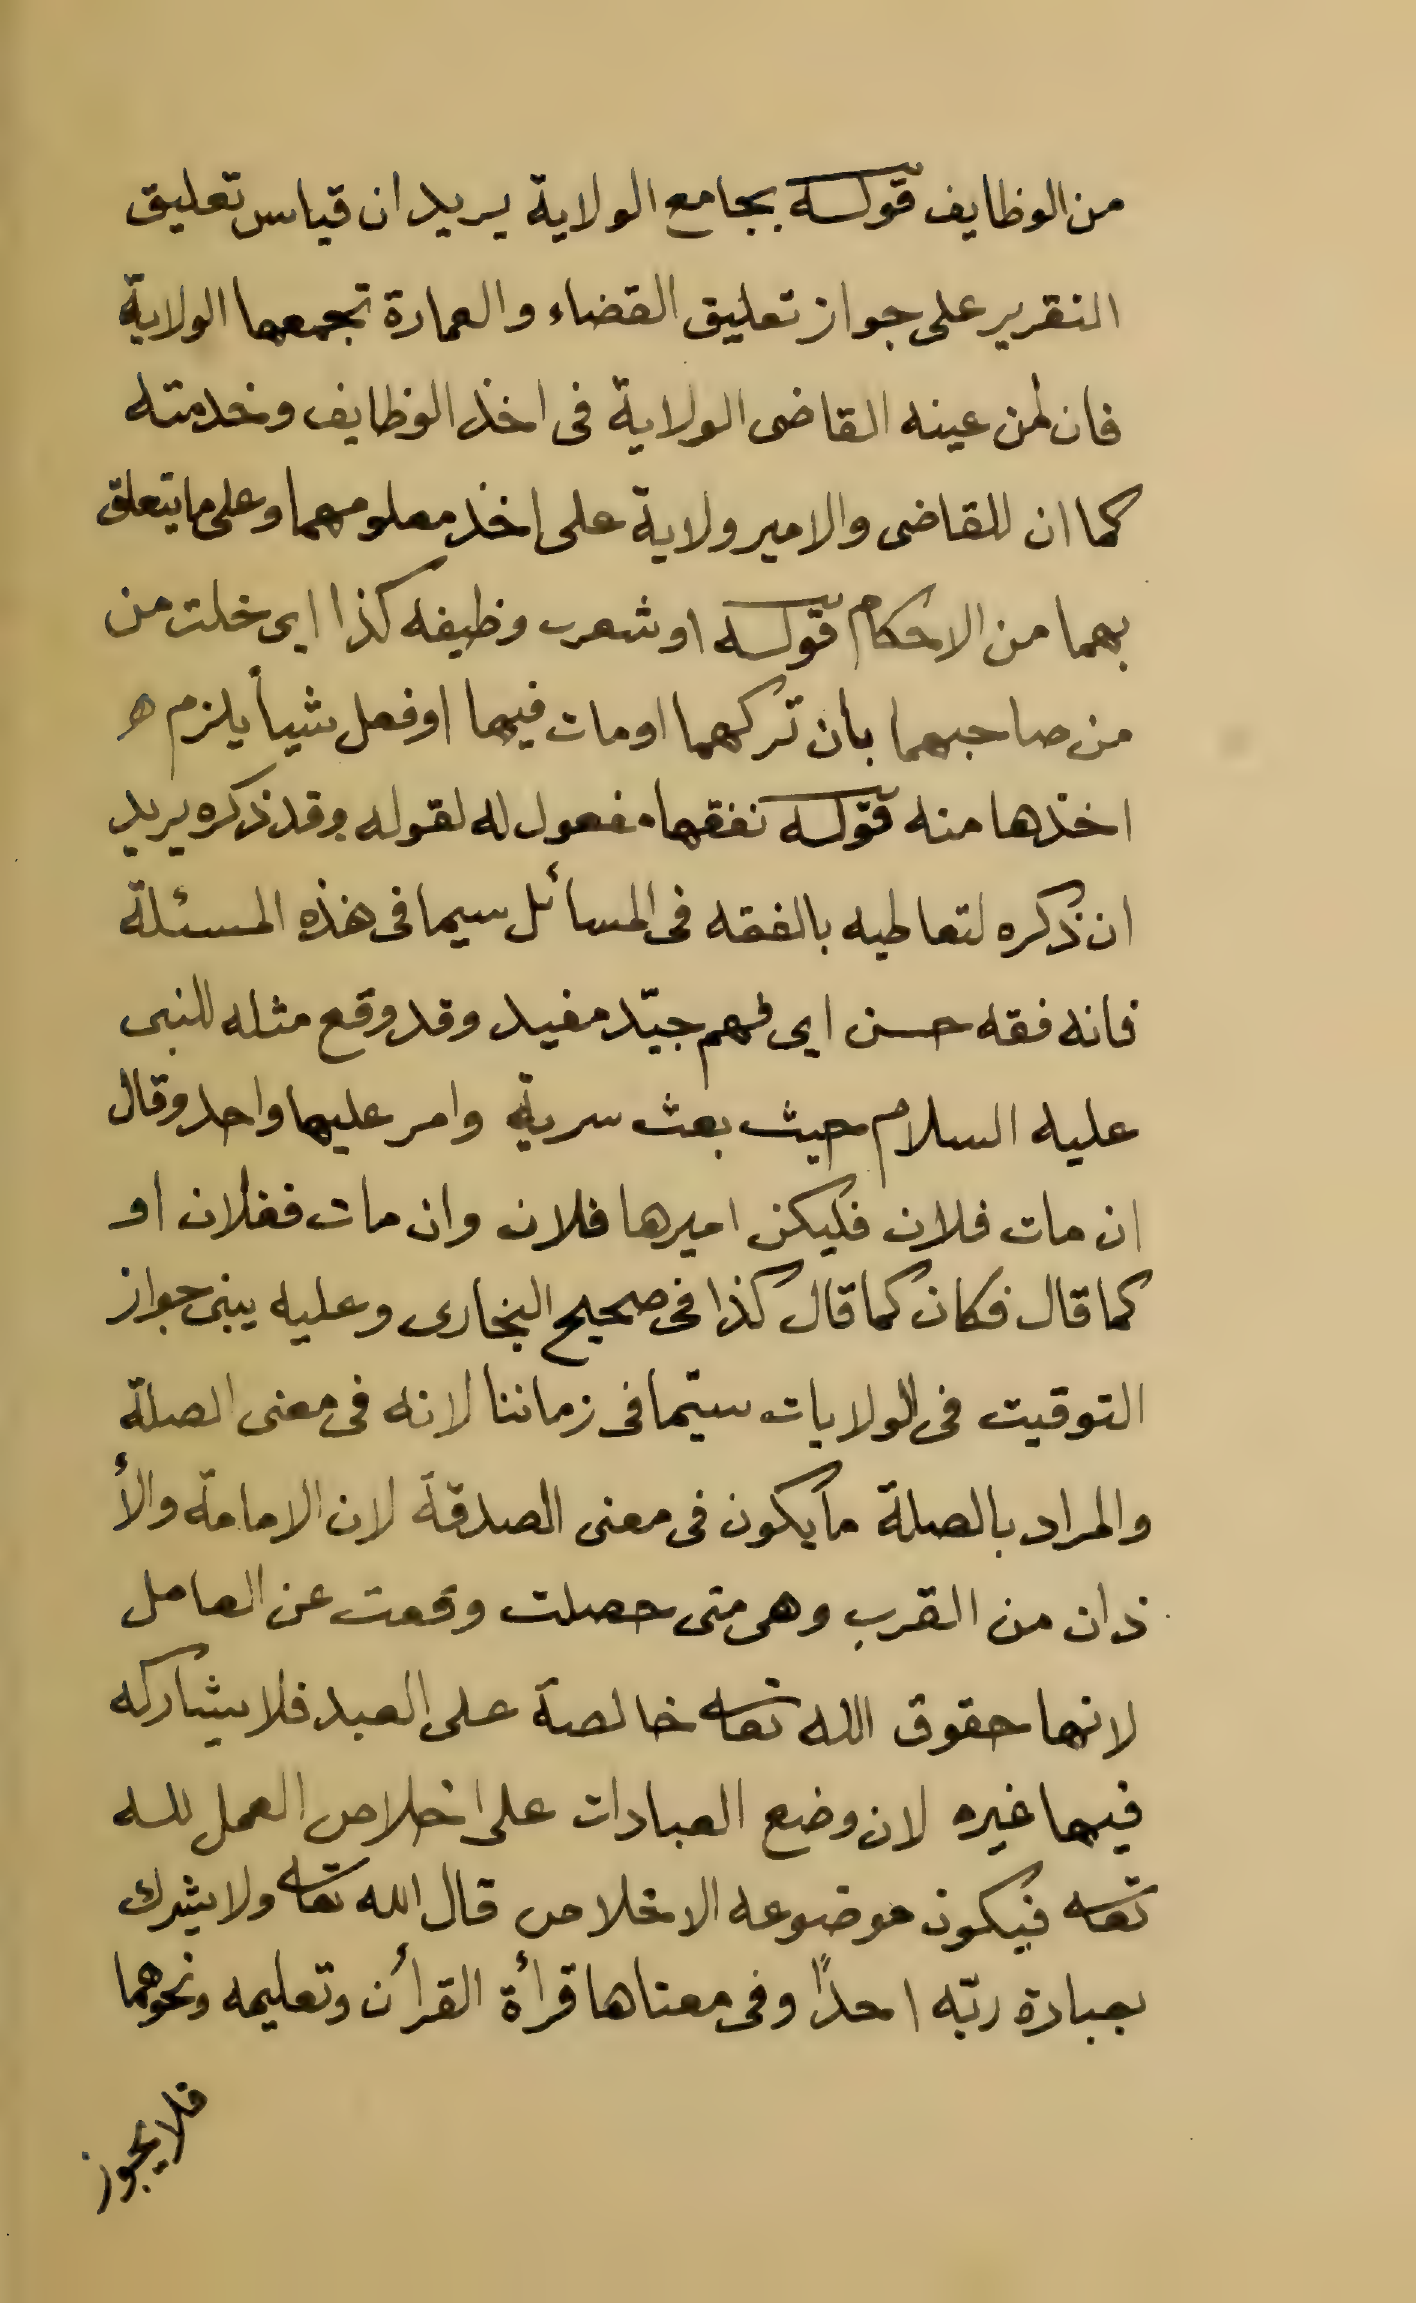 من الوظايف قوله بجامع الولاية يريد ان قياس تعليق
التقرير على جواز تعليق القضاء والعمارة تجمعهما الولاية
فان لمن عينه القاضى الولاية فى اخذ الوظايف وخدمته
كما ان للقاضى والامير ولاية على اخذ معلومهما وعلى ما يتعلق
بهما من الاحكام قوله او شعرب وظيفه كذا اى خلت من
من صاحبهما بان تركهما او مات فيهما او فعل شيأ يلزم ه
اخذها منه قوله نفقها مفعول له لقوله وقد ذكره يريد
ان ذكره لتعاطيه بالفقه فى المسائل سيما فى هذه المسئلة
فانه فقه حسن اى فهم جيّد مفيد وقد وقع مثله للنبى
عليه السلام حيث بعث سرية وامر عليهما واحد وقال
ان مات فلان فليكن اميرها فلان وان مات ففلان او
كما قال فكان كما قال كذا فى صحيح البخارى وعليه يبنى جواز
التوقيت فى الولايات سيّما فى زماننا لانه فى معنى الصلة
والمراد بالصلة ما يكون فى معنى الصدقة لان الامامة والأ
ذان من القرب وهى متى حصلت وقعت عن العامل
لانهما حقوق الله تعا خالصة على العبد فلا يشاركه
فيهما غيره لان وضع العبادات على اخلاص العمل لله
تعا فيكون موضوعه الاخلاص قال الله تعا ولا يشرك
بعبادة ربّه احدًا وفى معناها قرأة القرأن وتعليمه ونحوهما
فلا يجوز